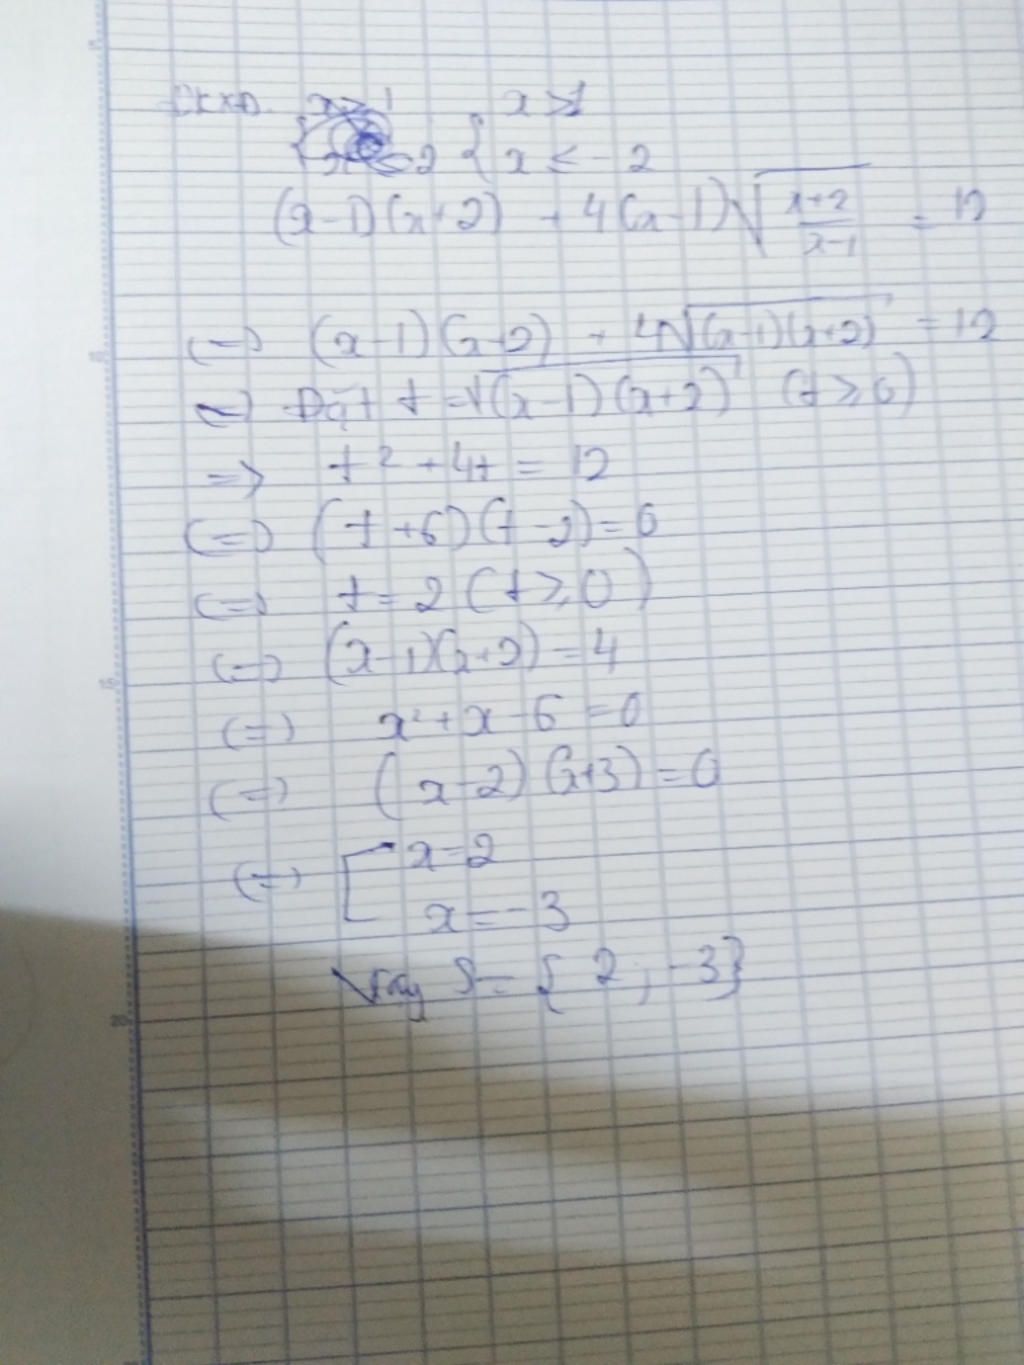 ĐKXĐ { x > 1
x ≤ -2
(x-1)(x+2) + 4(x-1)√((x+2)/(x-1)) = 12
(=) (x-1)(x+2) + 4√((x-1)(x+2)) = 12
=) Đặt t = √((x-1)(x+2)) (t ≥ 0)
=> t² + 4t = 12
(=) (t+6)(t-2) = 0
(=) t = 2 (t ≥ 0)
(=) (x-1)(x+2) = 4
(=) x² + x - 6 = 0
(=) (x-2)(x+3) = 0
(=) [ x = 2
x = -3
Vậy S = { 2 ; -3}